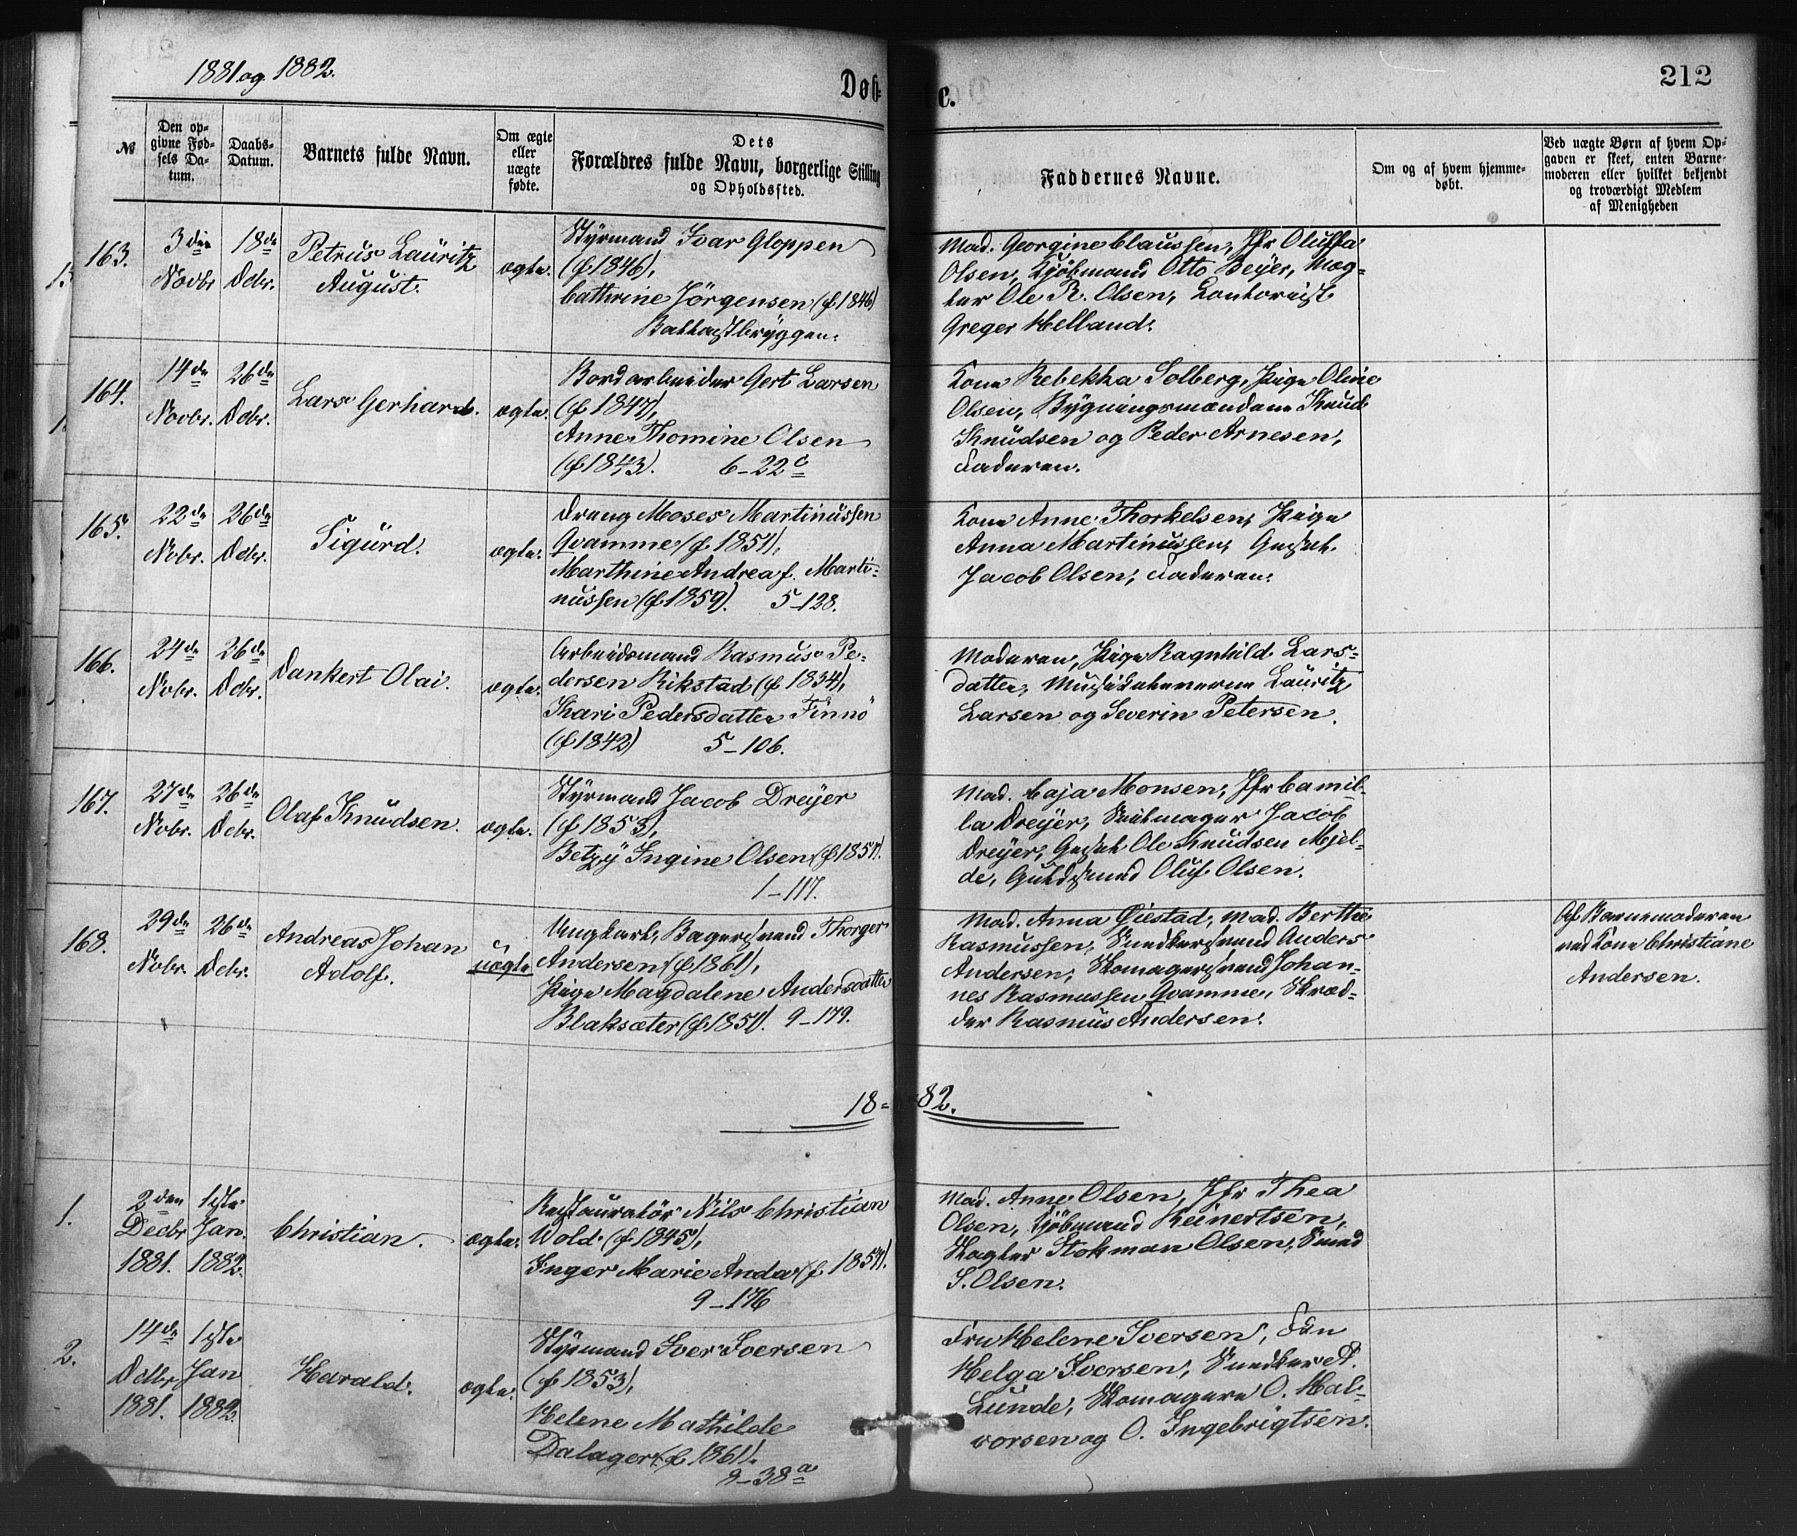 1881 og 1882.
Døb-
te.
212
№
Den op-
givne Fød-
sels Da-
tum.
Daabs-
Datum.
Barnets fulde Navn.
Om ægte
eller
uægte
fødte.
Dets
Forældres fulde Navn, borgerlige Stilling
og Opholdssted.
Faddernes Navne.
Om og af hvem hjemme-
døbt.
Ved uægte Børn af hvem Op-
gaven er skeet, enten Barne-
moderen eller hvilket bekjendt
og troværdigt Medlem
af Menigheden
163.
3die
Novbr
18de
Dcbr.
Petrus Lauritz
August.
ægte.
Styrmand Ivar Gloppen
(f 1846),
Cathrine Jörgensen (f 1846)
Ballastbryggen.
Mad. Georgine Claussen, Jfr Oluffa
Olsen, Kjöbmand Otto Beyer, Mæg-
ler Ole R. Olsen, Contorist
Greger Helland.
164.
14de
Novbr.
26de
Dcbr.
Lars Gerhard.
ægte.
Bordarbeider Gert Larsen
(f 1847),
Anne Thomine Olsen
(f 1843). 6-22c
Kone Rebekka Solberg, Pige Oline
Olsen, Bygningsmændene Knud
Knudsen og Peder Arnesen,
Faderen.
165.
22de
Nobr.
26de
Dcbr.
Sigurd.
ægte.
Dreng Moses Martinussen
Qvamme (f 1857),
Marthine Andrea f. Marti-
nussen (f 1859). 5-128.
Kone Anne Thorkelsen, Pige
Anna Martinussen, Gesel.
Jacob Olsen, Faderen.
166.
24de
Nobr.
26de
Dcbr.
Dankert Olai.
ægte.
Arbeidsmand Rasmus Pe-
dersen Rikstad (f 1834),
Kari Pedersdatter Finnö
(f 1842) 5-106.
Moderen, Pige Ragnhild Lars-
datter, Lauritz
Larsen og Severin Petersen.
167.
27de
Nobr.
26de
Dcbr.
Olaf Knudsen.
ægte.
Styrmand Jacob Dreyer
(f 1853),
Betzy Ingine Olsen (f 1857).
1-117.
Mad. Caja Monsen, Jfr Camil-
la Dreyer, Seilmager Jacob
Dreyer, Ole Knudsen Mjel-
de, Guldsmed Oluf Olsen.
168.
29de
Nobr.
26de
Dcbr.
Andreas Johan
Adolf.
uægte
Ungkarl, Bagersvend Thorger
Andersen (f 1861),
Pige Magdalene Andersdatter
Blaksæter (f 1857). 9-179.
Mad. Anna Øiestad, Mad. Berthe
Rasmussen, Snedkersvend Anders
Andersen, Skomagersvend Johan-
nes Rasmussen Qvamme, Skræd-
der Rasmus Andersen.
Af Barnemoderen
ved Kone Christiane
Andersen.
18-82.
1.
2den
Decbr
1881.
1ste
Jan.
1882.
Christian.
ægte.
Restauratör Nils Christian
Wold (f 1845),
Inger Marie Anda (f 1857).
9-176
Mad. Anne Olsen, Jfr Thea
Olsen, Kjöbmand Reinertsen,
Slagter Stokman Olsen, Smed
S. Olsen.
2.
14de
Dcbr
1881.
1ste
Jan
1882.
Harald.
ægte.
Styrmand Iver Iversen
(f 1853),
Helene Mathilde
Dalager (f 1861).
9-38a
Fru Helene Iversen, Frkn
Helga Iversen, Snedker A.
Lunde, Skomagere O. Hal-
vorsen og O. Ingebrigtsen.